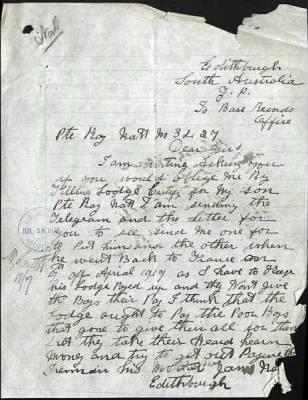 Natt
Edithburgh
South Australia
Y. P.
To Base Records
Office
Pte Roy Natt No 3427
Dear Sirs
I am writing asking you
if you would oblige me By
Filling Lodge for my son
Pte Roy Natt I am sending the
Telegram and the letter for
you to see send me one for
to Put him and the other when
he went Back to France on
of April 1917 as I have to Keep
his Lodge Payed up and they Wont give
the Boys their Pay I think that the
Lodge aught to Pay the Poor Boys
that gone to give them all you then
But they take their Heard hearn
Money and try to get out Paying the
his Mother
Edithburgh
JUL 18